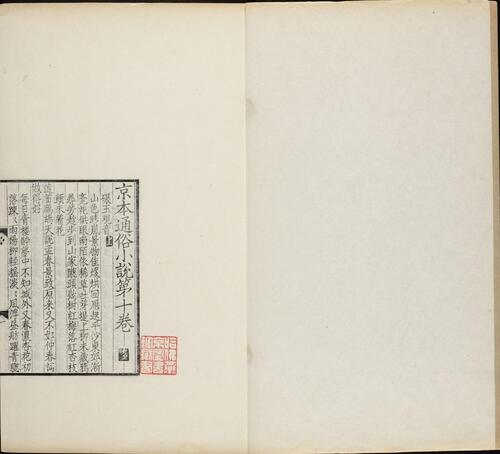 京本通俗小說第十卷
碾玉觀音 上
山色晴嵐景物佳煖烘回鴈起平沙東郊漸
覺花供眼南陌依稀草吐芽堤上柳未藏鴉
尋芳趁步到山家隴頭幾樹紅梅落紅杏枝
頭未着花
這首鷓鴣天說孟春景致原來又不如仲春詞
做得好
每日青樓醉夢中不知城外又春濃杏花初
落踈〻雨楊柳輕搖淡〻風浮畫舫躍青驄